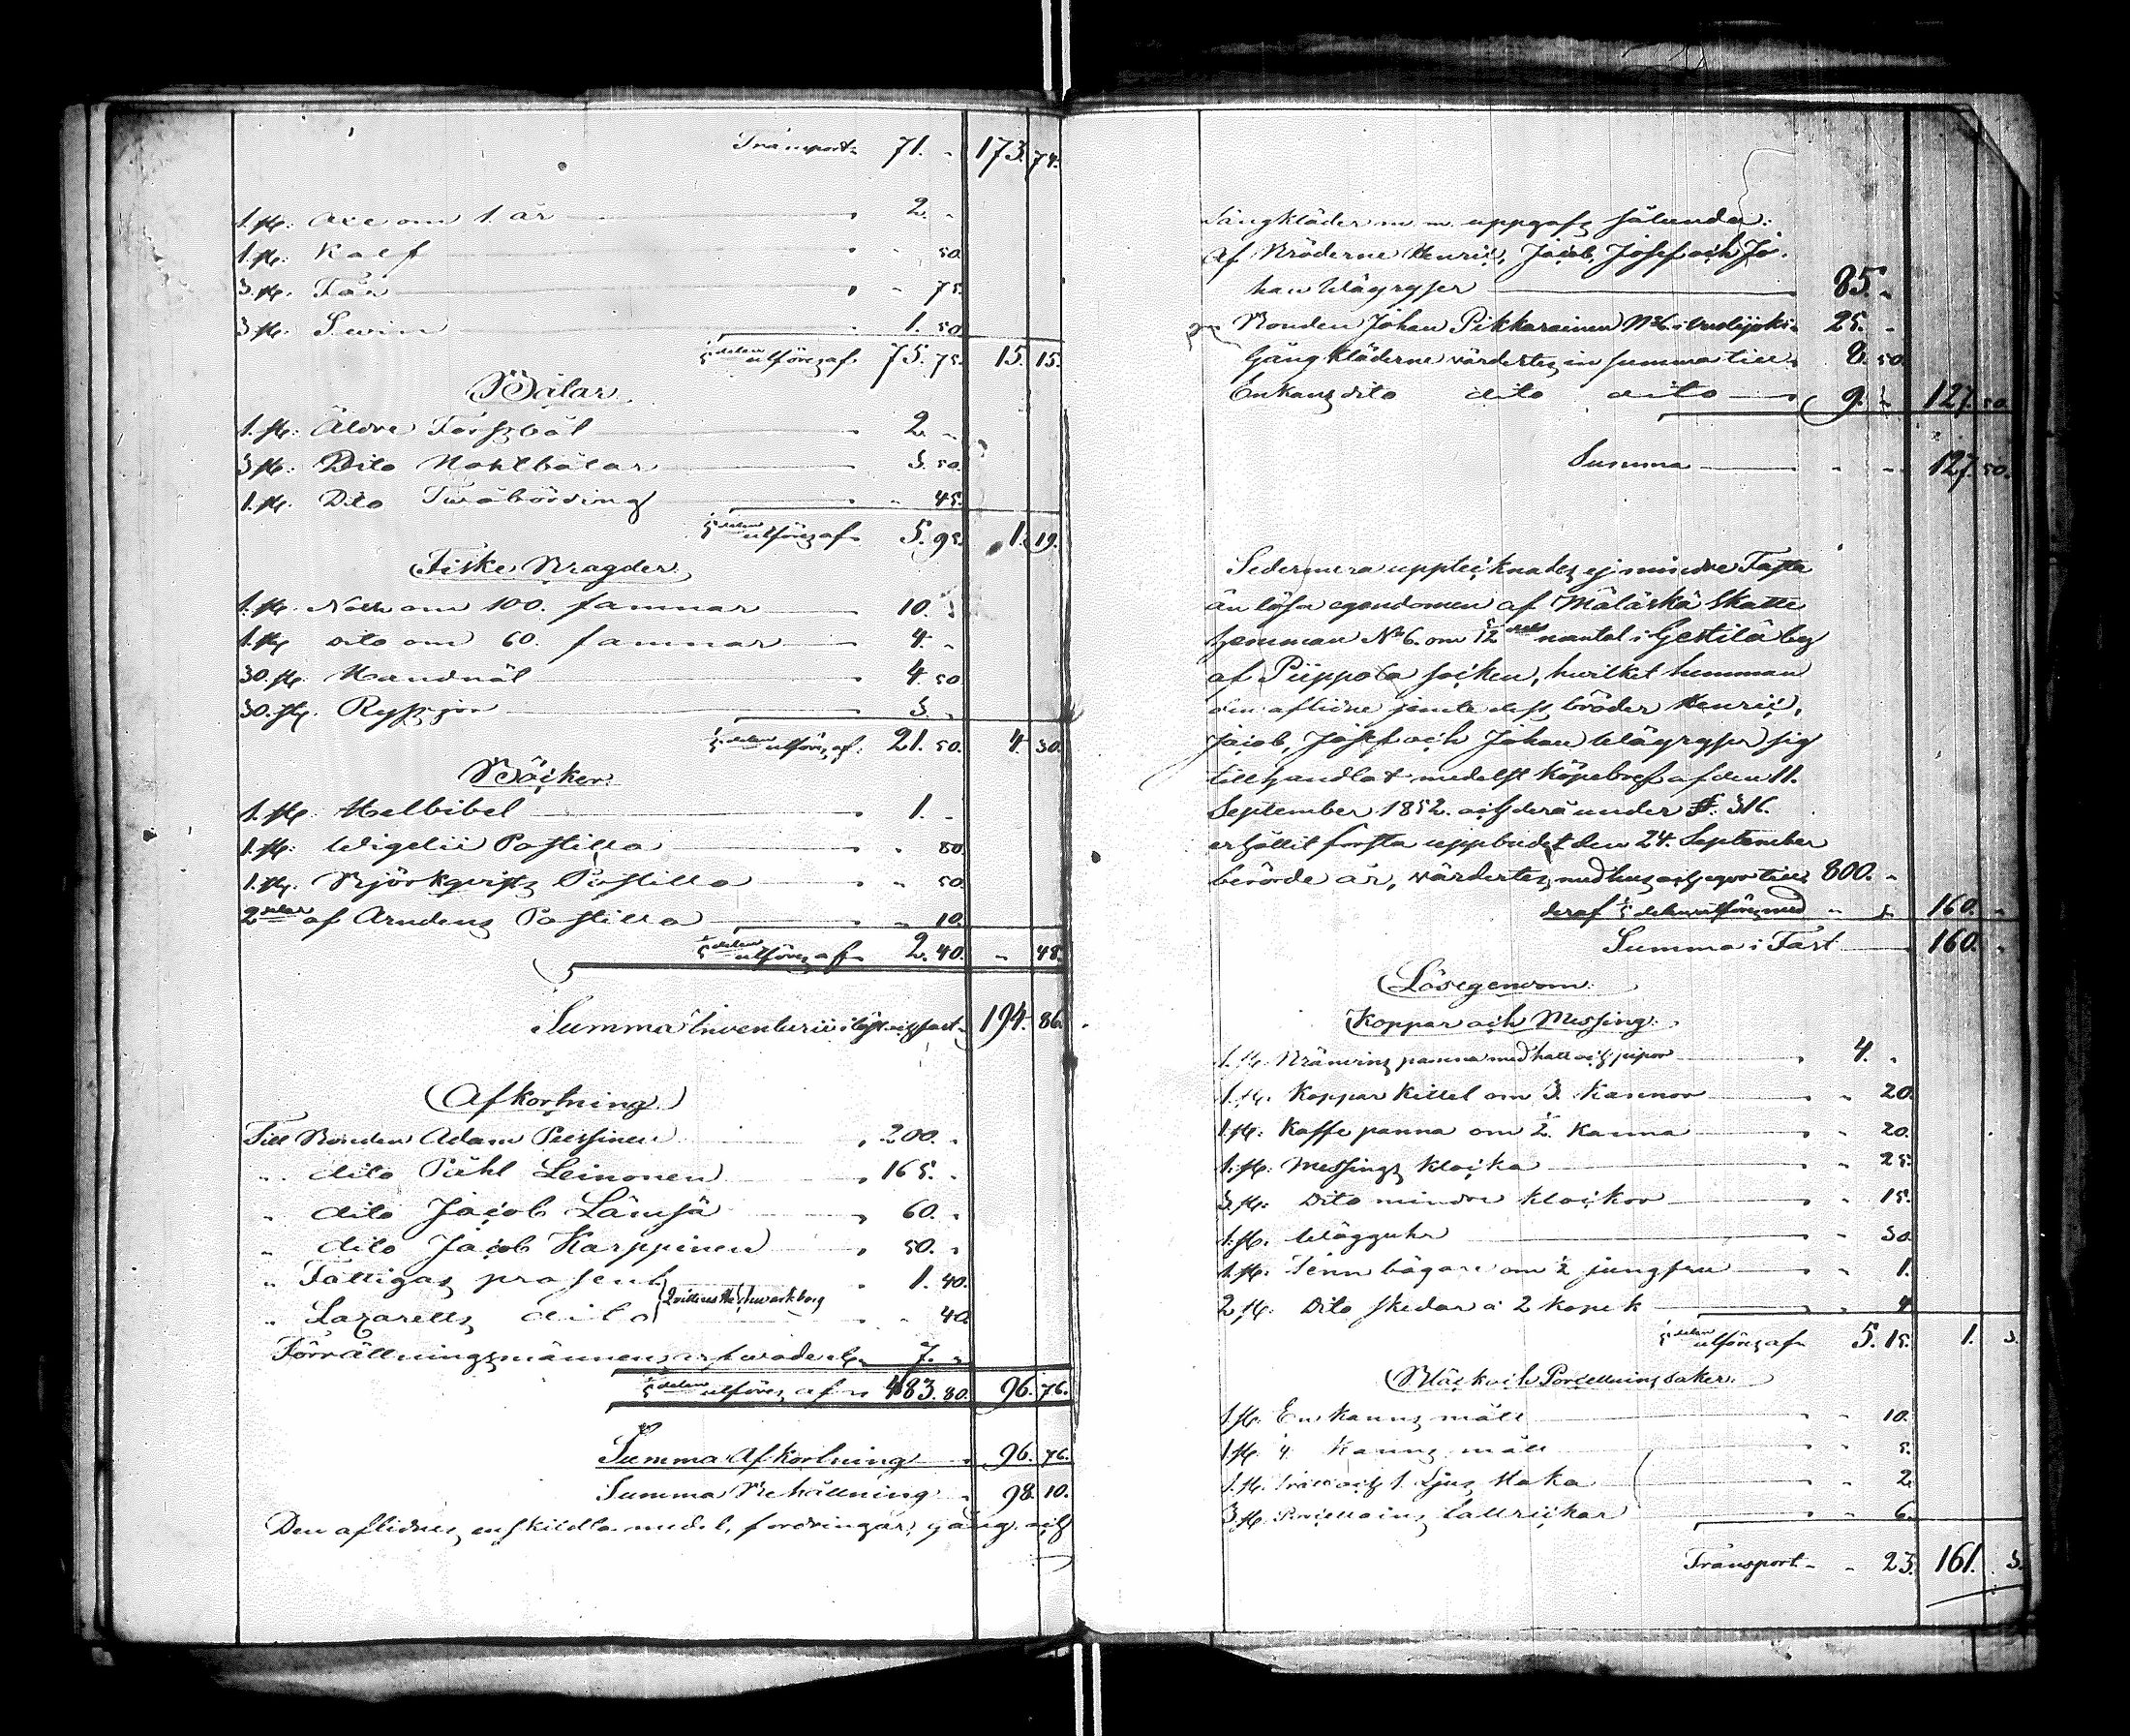 Transport 71. " 173. 74.
1. st: Oxe om 1. år " 2. "
1. st: Kalf " " 50.
3. st. Får " " 75.
3. st. Swin " 1. 50.
1/5 delen utföres af 75. 75. 15. 15.
Båtar.
1. st: Äldre Forssbåt " 2. "
3 st: Dito Nothbåtar " 3. 50.
1. st. Dito Twåbörding " " 45.
1/5 delen utföres af 5. 95. 1. 19.
Fiske Bragder.
1. st. Noth om 100. famnar " 10. "
1. st dito om 60. famnar " 4. "
30. st. " 4. 50
30. st. Ryssjor " 3. "
1/5 delen utföres af. 21. 50. 4. 30.
Böcker.
1. st. Helbibel " 1. "
1. st: Wigelii Postilla " " 80.
1. st. Björkqvists Postilla " " 50.
2 delar af Arndens Postilla " " 10.
1/5 delen utföres af 2. 40. " 48.
Summa Inventarii i löst och fast 194. 86.
Afkortning
Till Bonden Adam " 200. "
" dito Påhl Leinonen " 165. "
" dito Jacob Lämsä " 60. "
" dito Jacob Karppinen " 50. "
" Fattigas procent " 1. 40.
" Lazaretts dito " " 40
Förrättningsmännens arfwode " 7. "
1/5 delen utföres af 483. 80. 96. 76.
Summa Afkortning 96. 76.
Summa Behållning 98. 10.
Den aflidnes enskildta medel, fordringar, gång och
Sängkläder m. m. uppgafs sålunda:
Af Bröderne Henric, Jacob, Josef och Jo-
han Wäyrynen 85. "
" Bonden Johan Pikkarainen No 6. i 25. "
Gångkläderne värdertes in summa till 8. 50.
Enkans dito dito dito 9. " 127. 50.
Summa " " 127. 50.
Sedermera upptecknades ej mindre Fasta
än lösa egendomen af Mäläskä Skatte
hemman No 6. om 5/12 dels mantal i Gestilä by
af Piippola socken, hwilket hemman
den aflidne jemte dess bröder Henric,
Jacob, Josef och Johan Wäyrynen sig
tillhandlat medelst Köpebref af den 11.
September 1852. och derå under §. 316.
erhållit första uppbudet den 24. September
berörde år, värdertes med hus och jord till 800. "
deraf 1/5 delen utföres med " " 160. "
Summa i Fast 160. "
Lösegendom.
Koppar och Messing.
1. st. Bränvins panna med hatt och pipor " 4. "
1. st. Koppar Kittel om 3. Kannor " " 20.
1. st: Kaffe panna om 1/2. Kanna " " 20.
1. st: Messings klocka " " 25.
3. st: Dito mindre klockor " " 15.
1. st. Wägguhr " " 30
1. st. Tenn bägare om 1/2 jungfru " " 1.
2. st. Dito skedar a 2 kopek " " 4
1/5 delen utföres af 5. 15. 1. 3.
Bläck och Porcellins saker.
1. st. En kanns mått " " 10.
1 st. 1/4 Kanns mått " " 5.
1. st. och 1. Ljus staka " " 2
3 st. Porcellains tallrickar " " 6.
Transport " " 23. 161. 3.